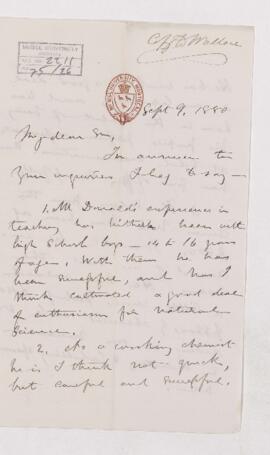 McGILL UNIVERSITY
ACC. NO. 2211
REF. 25/26
McGILL UNIVERSITY ARCHIVES
Sept 9, 1880
My dear Sir,
In answer to
Your inquiries I beg to say —
1. McDonald's experience in
teaching has hitherto been with
high School boys — 14 to 16 years
of age. With them he has
been successful, and has I
think cultivated a good deal
of enthusiasm for Natural
Science.
2. As a working chemist
he is I think not quick,
but careful and successful.